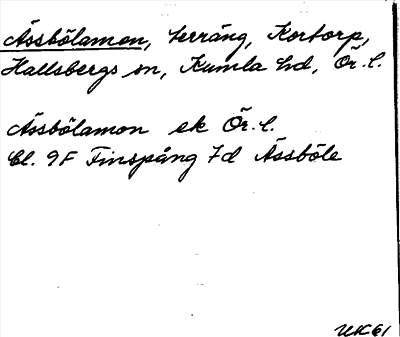 Ässbölamon, terräng, Kortorp,
Hallsbergs sn, Kumla hd, Ör. l.
Ässbölamon ek Ör. l.
Bl. 9F Finspång 7d Ässböle
UK61